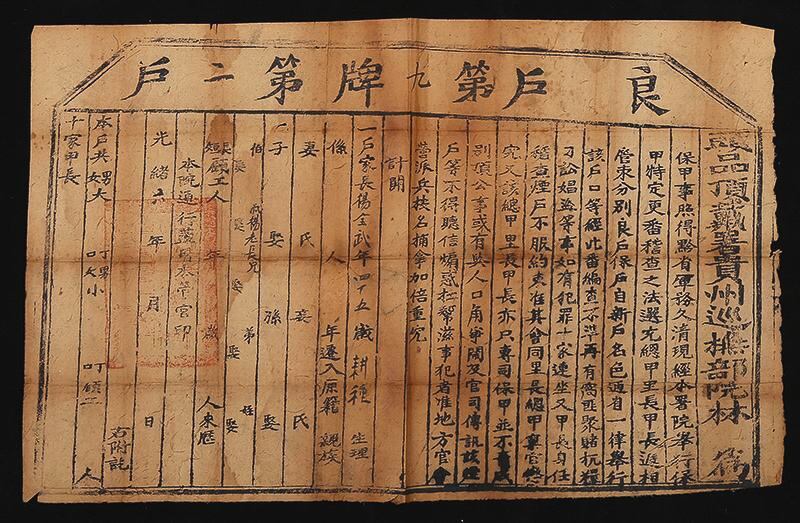 良戶第九牌第二戶
頭品頂戴署貴州巡撫部院林 為
保甲事照得黔省軍務久清現經本署院舉行保
甲特定更番稽查之法選充總甲里長甲長遞相
管束分別良戶保戶自新戶名色通省一律舉行
該戶口等經此番編查不準再有窩匪聚賭抗糧
刁訟娼盜等事如有犯罪十家連坐又甲長身任
稽查煙戶不服約束准其會同里長總甲稟官懲
究又該總甲里長甲長亦只專司保甲並不責成
別項公事或有與人口角爭鬧及官司傳訊該
戶等不得聽信煽惑扛幫滋事犯者准地方官會
營派兵按名捕拿加倍重究
計開
一戶家長楊全武年四十五歲 耕種 生理
係 人 年遷入原籍 親族
妻 氏 妾 氏
一子 娶 孫 娶
伯 叔楊老長兄 弟 姪
娶 娶 娶 娶
長短雇工人 年 歲 人來歷
本院通行蓋用本管官印
光緒六年 月 日
右附註
本戶共男大 丁男小 丁 雇工 人
口女 口
十家甲長